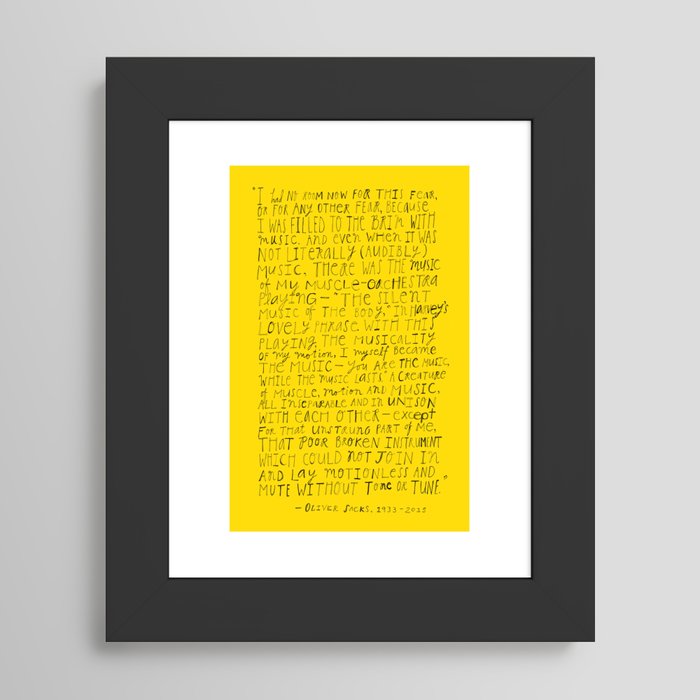 "I had NO ROOM NOW FOR THIS FEAR,
OR FOR ANY OTHER FEAR, BECAUSE
I WAS FILLED TO THE BRIM WITH
MUSIC. AND EVEN WHEN IT WAS
NOT LITERALLY (AUDIBLY)
MUSIC, THERE WAS THE MUSIC
OF MY MUSCLE-ORCHESTRA
PLAYING – "THE SILENT
MUSIC OF THE BODY," IN HARVEY'S
LOVELY PHRASE. WITH THIS
PLAYING, THE MUSICALITY
OF MY MOTION, I MYSELF BECAME
THE MUSIC – "YOU ARE THE MUSIC,
WHILE THE MUSIC LASTS." A CREATURE
OF MUSCLE, MOTION AND MUSIC,
ALL INSEPARABLE AND IN UNISON
WITH EACH OTHER – EXCEPT
FOR THAT UNSTRUNG PART OF ME,
THAT POOR BROKEN INSTRUMENT
WHICH COULD NOT JOIN IN
AND LAY MOTIONLESS AND
MUTE WITHOUT TONE OR TUNE."
– OLIVER SACKS, 1933-2015